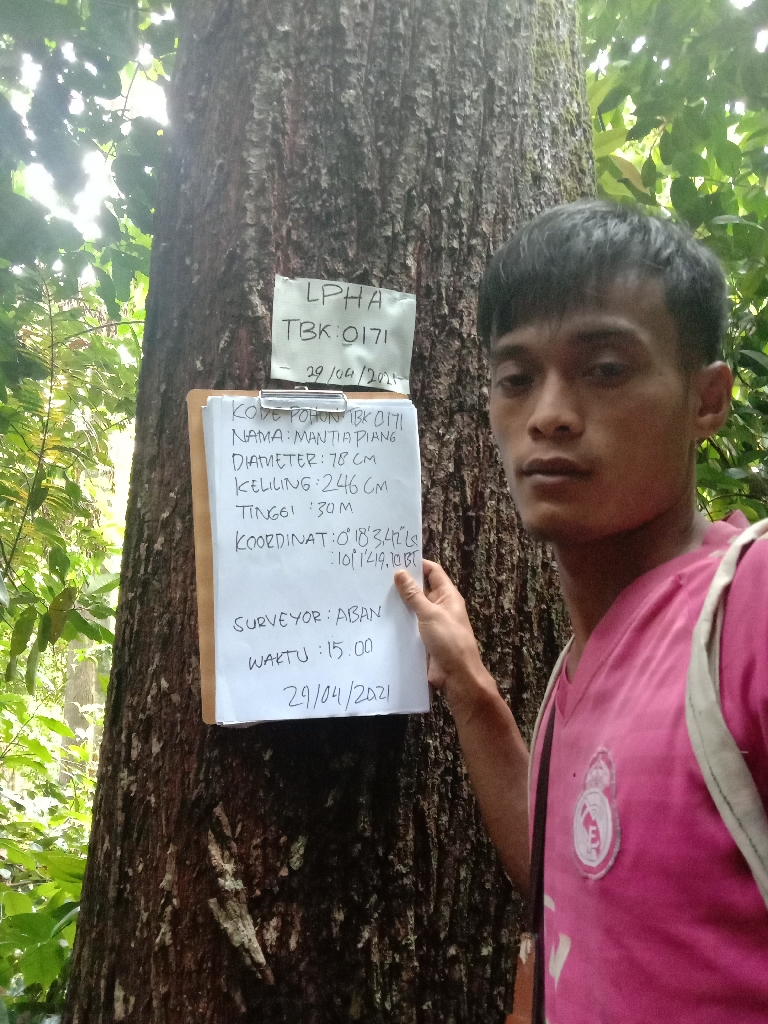 LPHA
TBK:0171
29/04/2021
KODE POHON TBK 0171
NAMA: MANTIA PIANG
DIAMETER: 78 CM
KELILING: 246 CM
TINGGI : 30 M
KOORDINAT: 0° 18' 3,42" LS
: 101° 1' 49,10 BT
SURVEYOR: ABAN
WAKTU : 15.00
29/04/2021